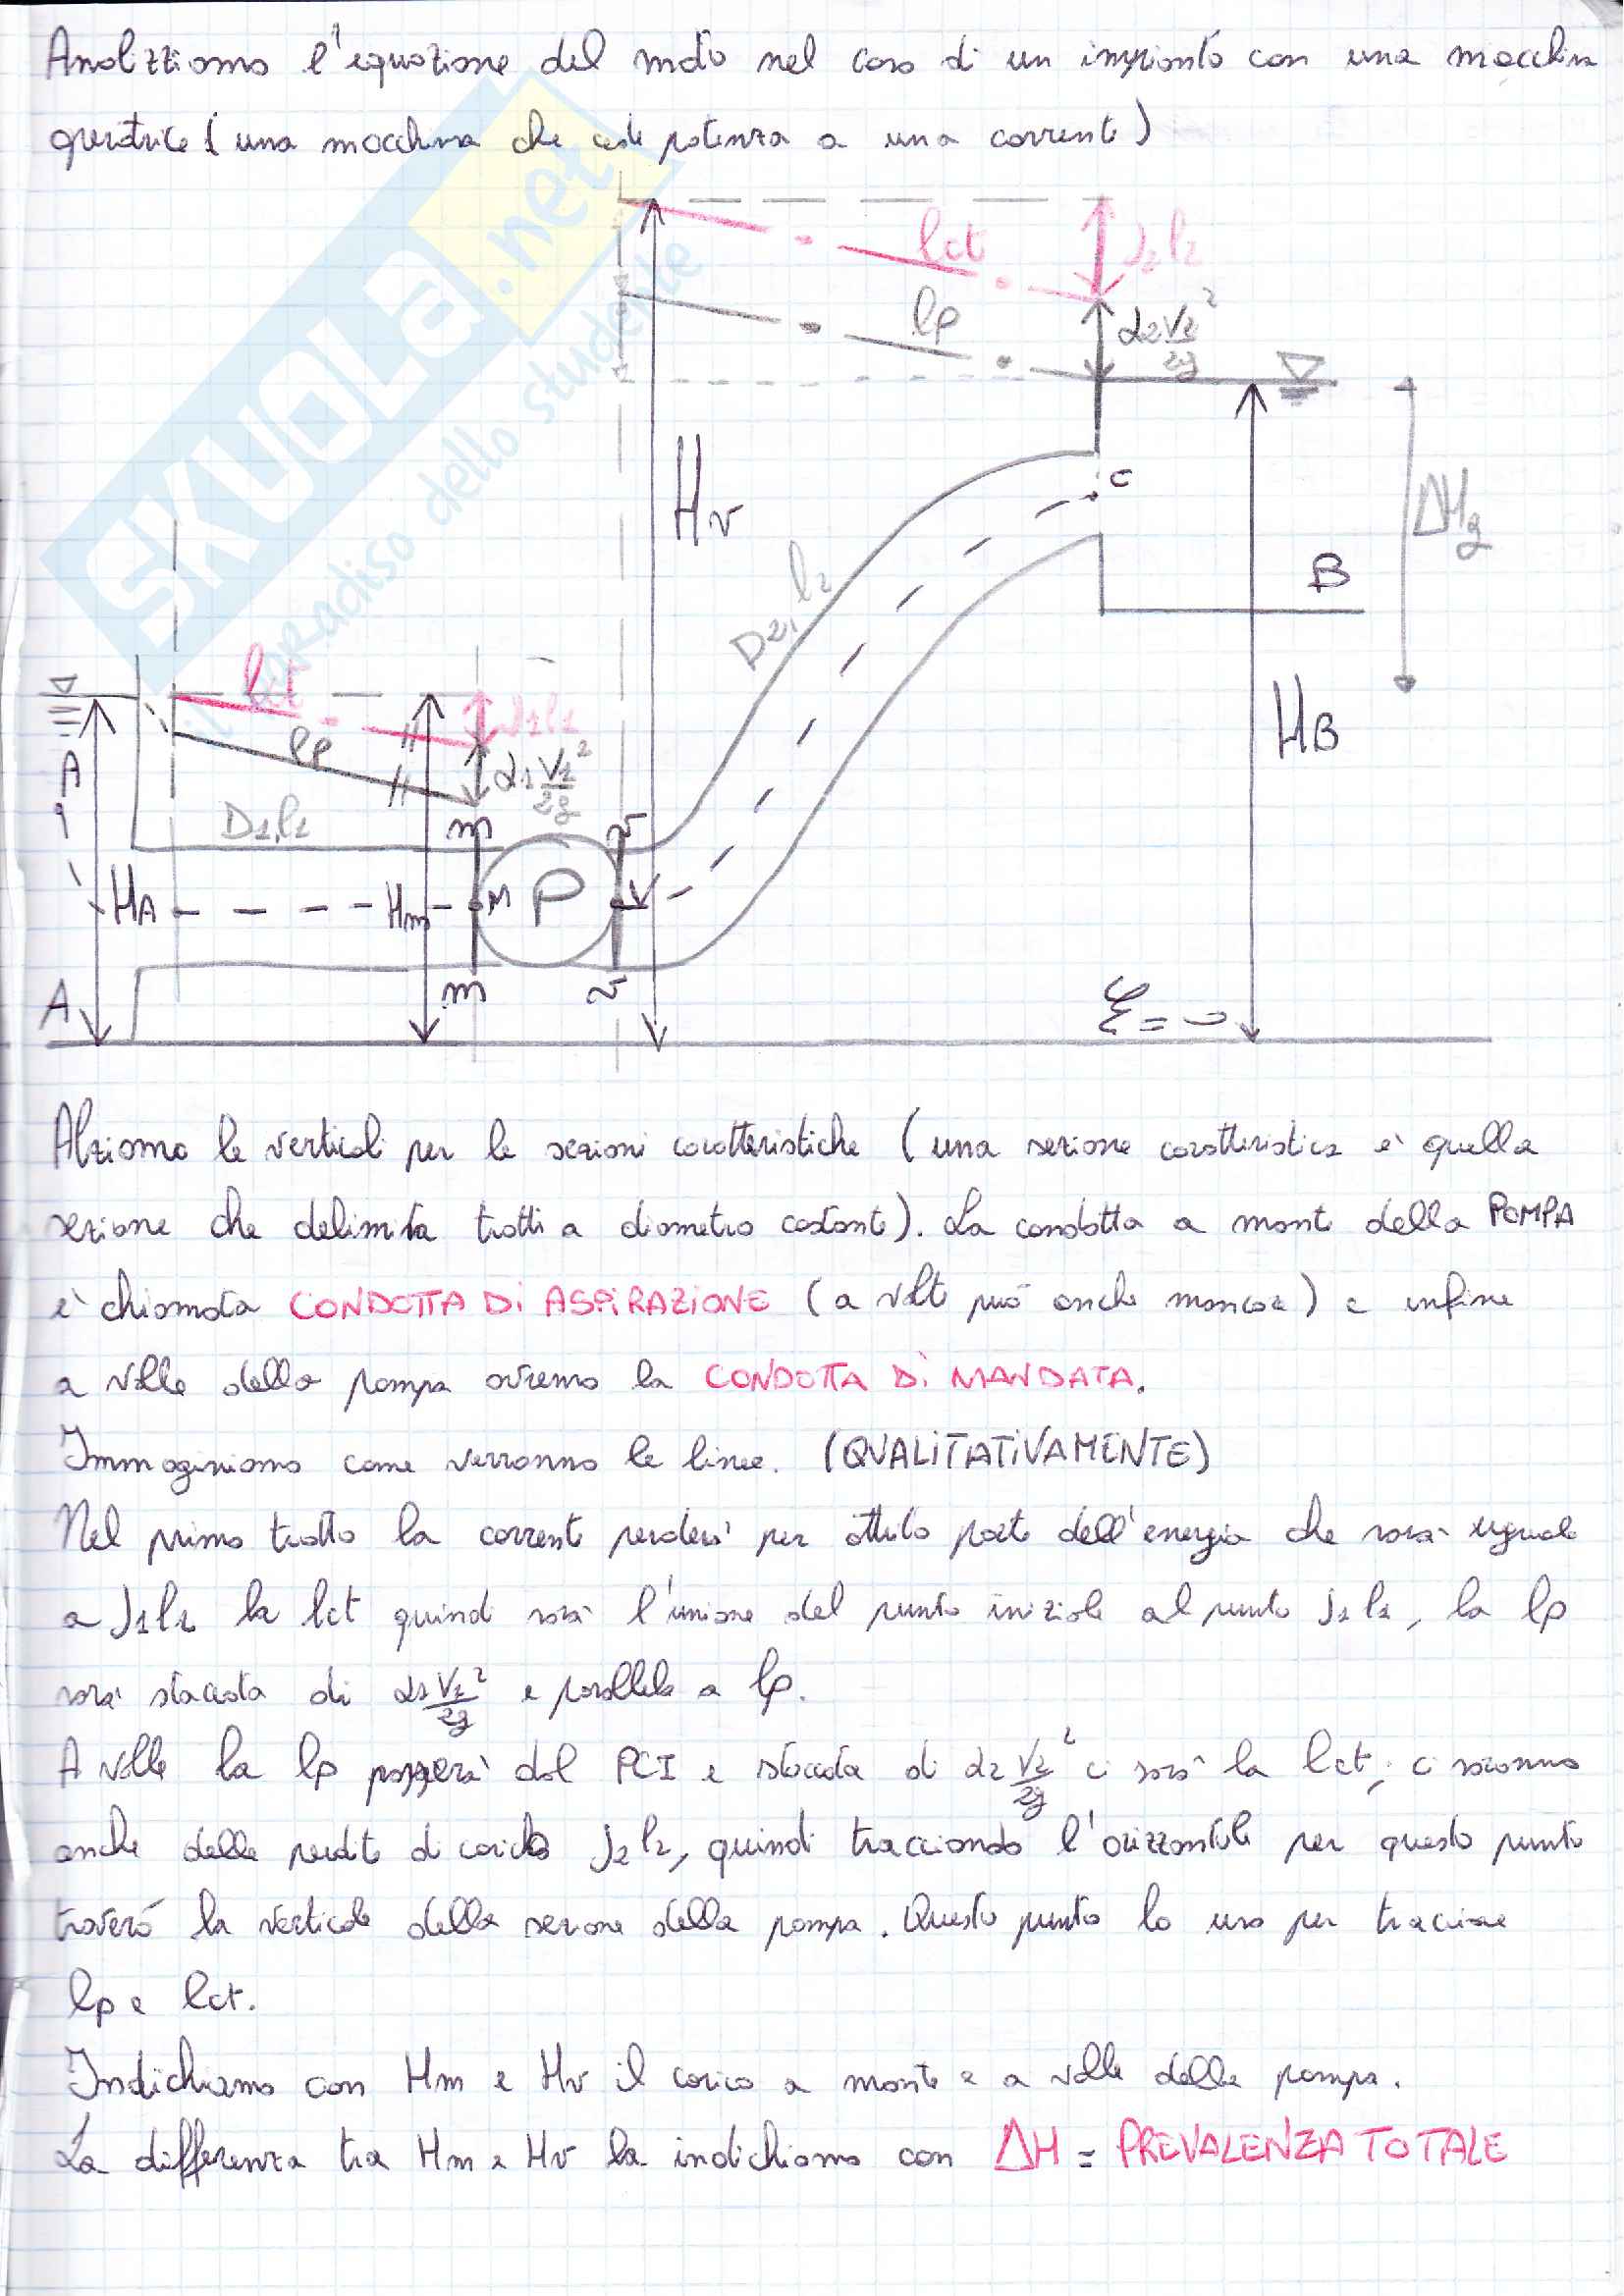 Analizziamo l'equazione del moto nel caso di un impianto con una macchina
operatrice (una macchina che cede potenza a una corrente)
SKUOLA.net
il paradiso dello studente
lct
J2l2
lp
α2 V2²/2g
Hv
C
ΔHg
D2, l2
B
lct
J1l1
HB
lp
α1 V1²/2g
A
D1, l1
m
v
HA
Hm
M
P
V
m
v
A
z=0
Alziamo le verticali per le sezioni caratteristiche (una sezione caratteristica è quella
sezione che delimita tratti a diametro costante). La condotta a monte della POMPA
è chiamata CONDOTTA Di ASPiRAZiONE (a volte può anche mancare) e infine
a valle della pompa avremo la CONDOTTA Di MANDATA.
Immaginiamo come verranno le linee. (QUALiTATiVAMENTE)
Nel primo tratto la corrente perderà per attrito parte dell'energia che sarà uguale
a J1l1 la lct quindi sarà l'unione del punto iniziale al punto J1l1, la lp
sarà staccata di α1 V1²/2g e parallela a lp.
A valle la lp passerà dal PCI e staccata di α2 V2²/2g ci sarà la lct, ci saranno
anche delle perdite di carico J2l2, quindi tracciando l'orizzontale per questo punto
troverò la verticale della sezione della pompa. Questo punto lo uso per tracciare
lp e lct.
Indichiamo con Hm e Hv il carico a monte e a valle della pompa.
La differenza tra Hm e Hv la indichiamo con ΔH = PREVALENZA TOTALE